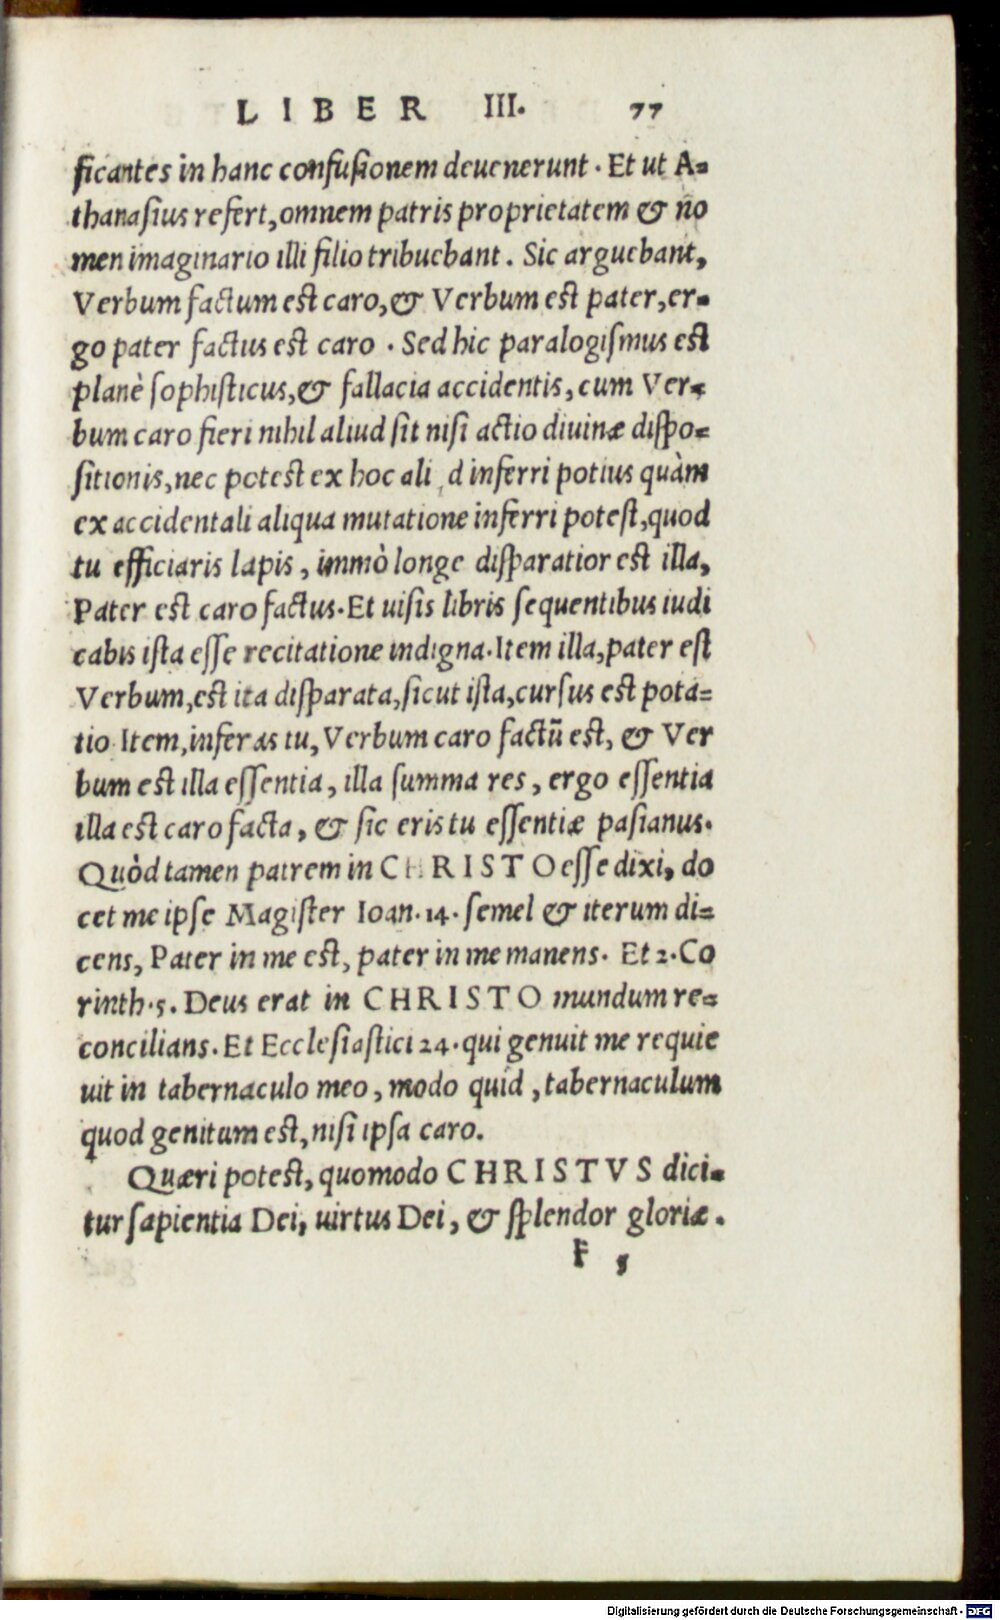 LIBER III. 77
ficantes in hanc confusionem deuenerunt. Et ut A=
thanasius refert, omnem patris proprietatem & nō
men imaginario illi filio tribuebant. Sic arguebant,
Verbum factum est caro, & Verbum est pater, er=
go pater factus est caro. Sed hic paralogismus est
planè sophisticus, & fallacia accidentis, cum Ver=
bum caro fieri nihil aliud sit nisi actio diuinæ dispo=
sitionis, nec potest ex hoc ali d inferri potius quàm
ex accidentali aliqua mutatione inferri potest, quod
tu efficiaris lapis, immò longe disparatior est illa,
Pater est caro factus. Et uisis libris sequentibus iudi
cabis ista esse recitatione indigna. Item illa, pater est
Verbum, est ita disparata, sicut ista, cursus est pota=
tio Item, inferas tu, Verbum caro factū est, & Ver
bum est illa essentia, illa summa res, ergo essentia
illa est caro facta, & sic eris tu essentiæ pasianus.
Quòd tamen patrem in CHRISTO esse dixi, do
cet me ipse Magister Ioan. 14. semel & iterum di=
cens, Pater in me est, pater in me manens. Et 2. Co
rinth. 5. Deus erat in CHRISTO mundum re=
concilians. Et Ecclesiastici 24. qui genuit me requie
uit in tabernaculo meo, modo quid, tabernaculum
quod genitum est, nisi ipsa caro.
Quæri potest, quomodo CHRISTVS dici=
tur sapientia Dei, uirtus Dei, & splendor gloriæ.
F 5
Digitalisierung gefördert durch die Deutsche Forschungsgemeinschaft - DFG